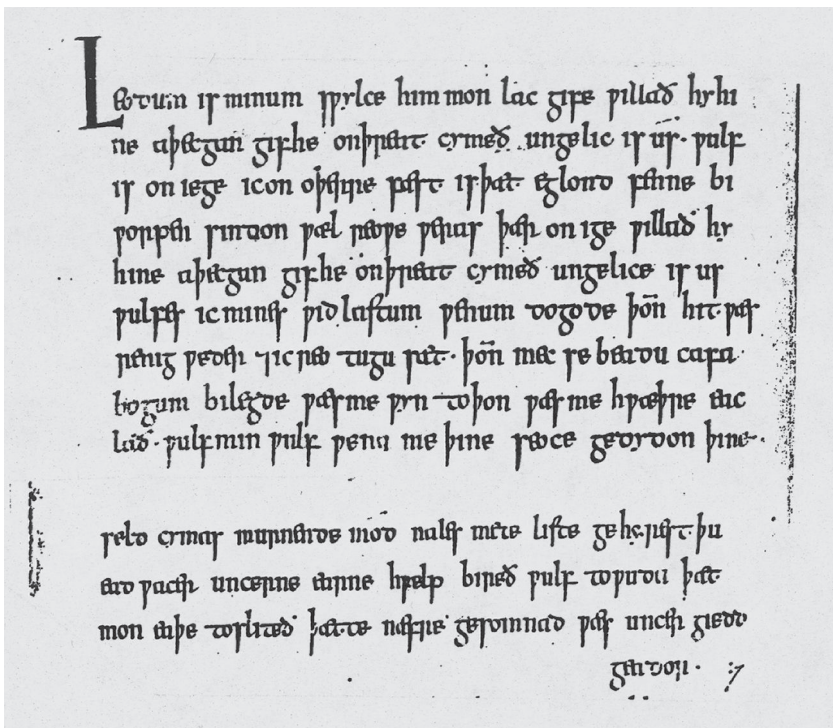 Leodum is minum sƿylce him mon lac gife ƿillað hy hi
ne aþecgan gif he on þreat cymeð ungelic is us · ƿulf
is on iege ic on oþerre fæst is þæt eglond fenne bi
ƿorpen sindon ƿæl reoƿe ƿeras þær on ige ƿillað hy
hine aþecgan gif he on þreat cymeð ungelice is us
ƿulfes ic mines ƿid lastum ƿenum dogode þon̄ hit ƿæs
renig ƿeder ⁊ ic reo tugu sæt · þon̄ mec se beadu cafa
bogum bilegde ƿæs me ƿyn to þon ƿæs me hƿæþre eac
lað · ƿulf min ƿulf ƿena me þine seoce gedydon þine
seld cymas murnende mod nales mete liste gehyrest þu
ead ƿacer uncerne earne hƿelp bireð ƿulf to ƿuda þæt
mon eaþe tosliteð þætte næfre gesomnad ƿæs uncer giedd
geador · :⁊